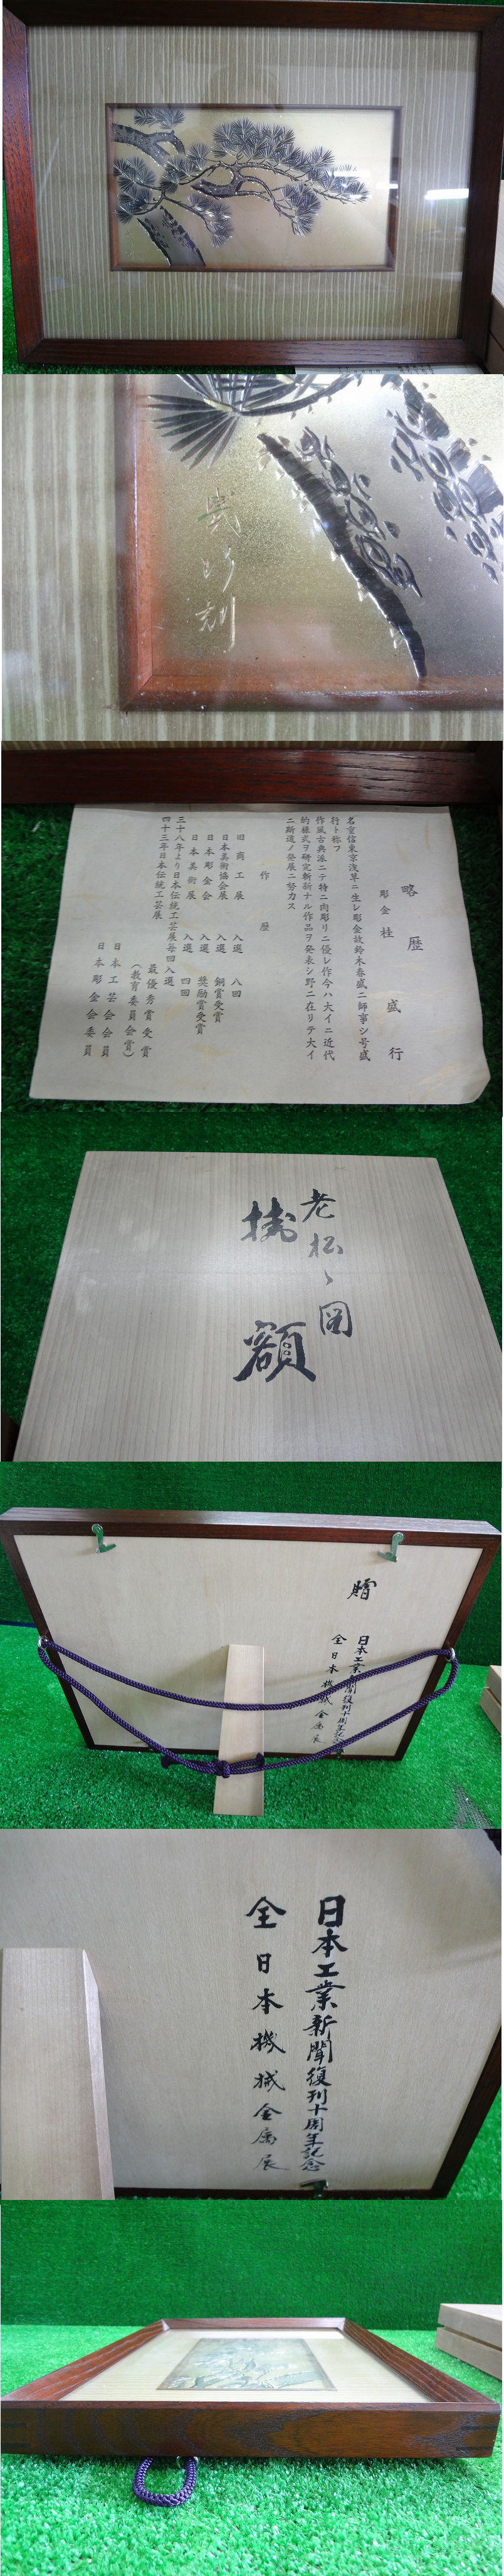 盛行刻
略歴
彫金 桂 盛行
名重信東京浅草ニ生レ彫金故鈴木春盛ニ師事シ号盛
行ト称フ
作風古典派ニテ特ニ肉彫リニ優レ作今ハ大イニ近代
的様式ヲ研究斬新ナル作品ヲ発表シ野ニ在リテ大イ
ニ斯道ノ発展ニ努力ス
作歴
旧商工展 入選 八回
日本美術協会展 入選 銅賞受賞
日本彫金会 入選 奨励賞受賞
日本美術展 入選 四回
三十八年より日本伝統工芸展毎回入選
四十三年日本伝統工芸展 最優秀賞受賞
(教育委員会賞)
日本工芸会会員
日本彫金会委員
老松ノ図
掛額
贈
日本工業新聞復刊十周年記念
全日本機械金属展
日本工業新聞復刊十周年記念
全日本機械金属展